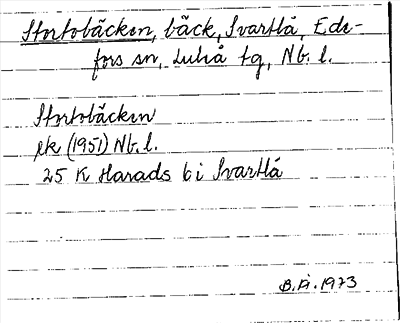 Stortobäcken, bäck, Svartlå, Ede-
fors sn, Luleå tg, Nb. l.
Stortobäcken
ek (1951) Nb. l.
25 K Harads b i Svartlå
B.Fi. 1973